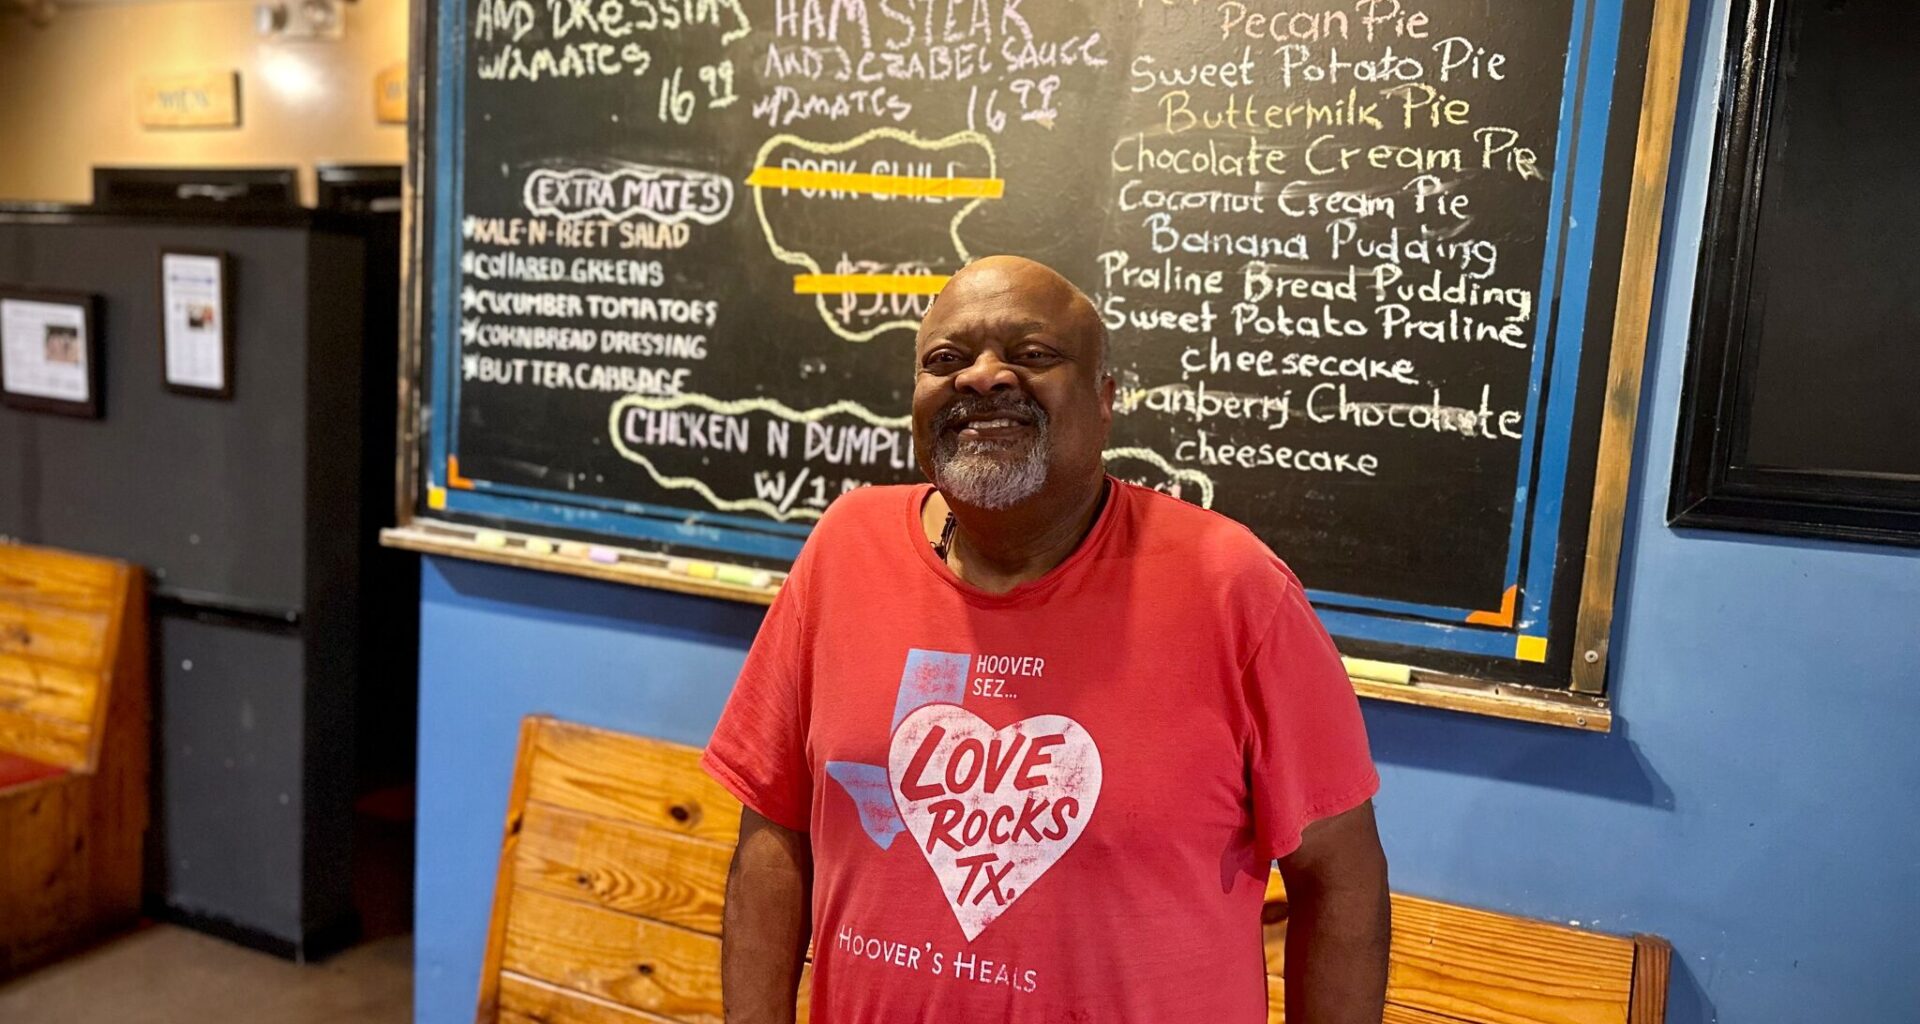 AND DRESSING
W/2 MATES
16 99
HAM STEAK
AND JEZABEL SAUCE
W/2 MATES 16 99
EXTRA MATES
*KALE-N-BEET SALAD
*COLLARED GREENS
*CUCUMBER TOMATOES
*CORNBREAD DRESSING
*BUTTER CABBAGE
PORK CHILI
$3.00
CHICKEN N DUMPLI
W/1
Pecan Pie
Sweet Potato Pie
Buttermilk Pie
Chocolate Cream Pie
Coconut Cream Pie
Banana Pudding
Praline Bread Pudding
Sweet Potato Praline
cheesecake
ranberry Chocolate
cheesecake
MEN
HOOVER
SEZ...
LOVE
ROCKS
TX.
HOOVER'S HEALS